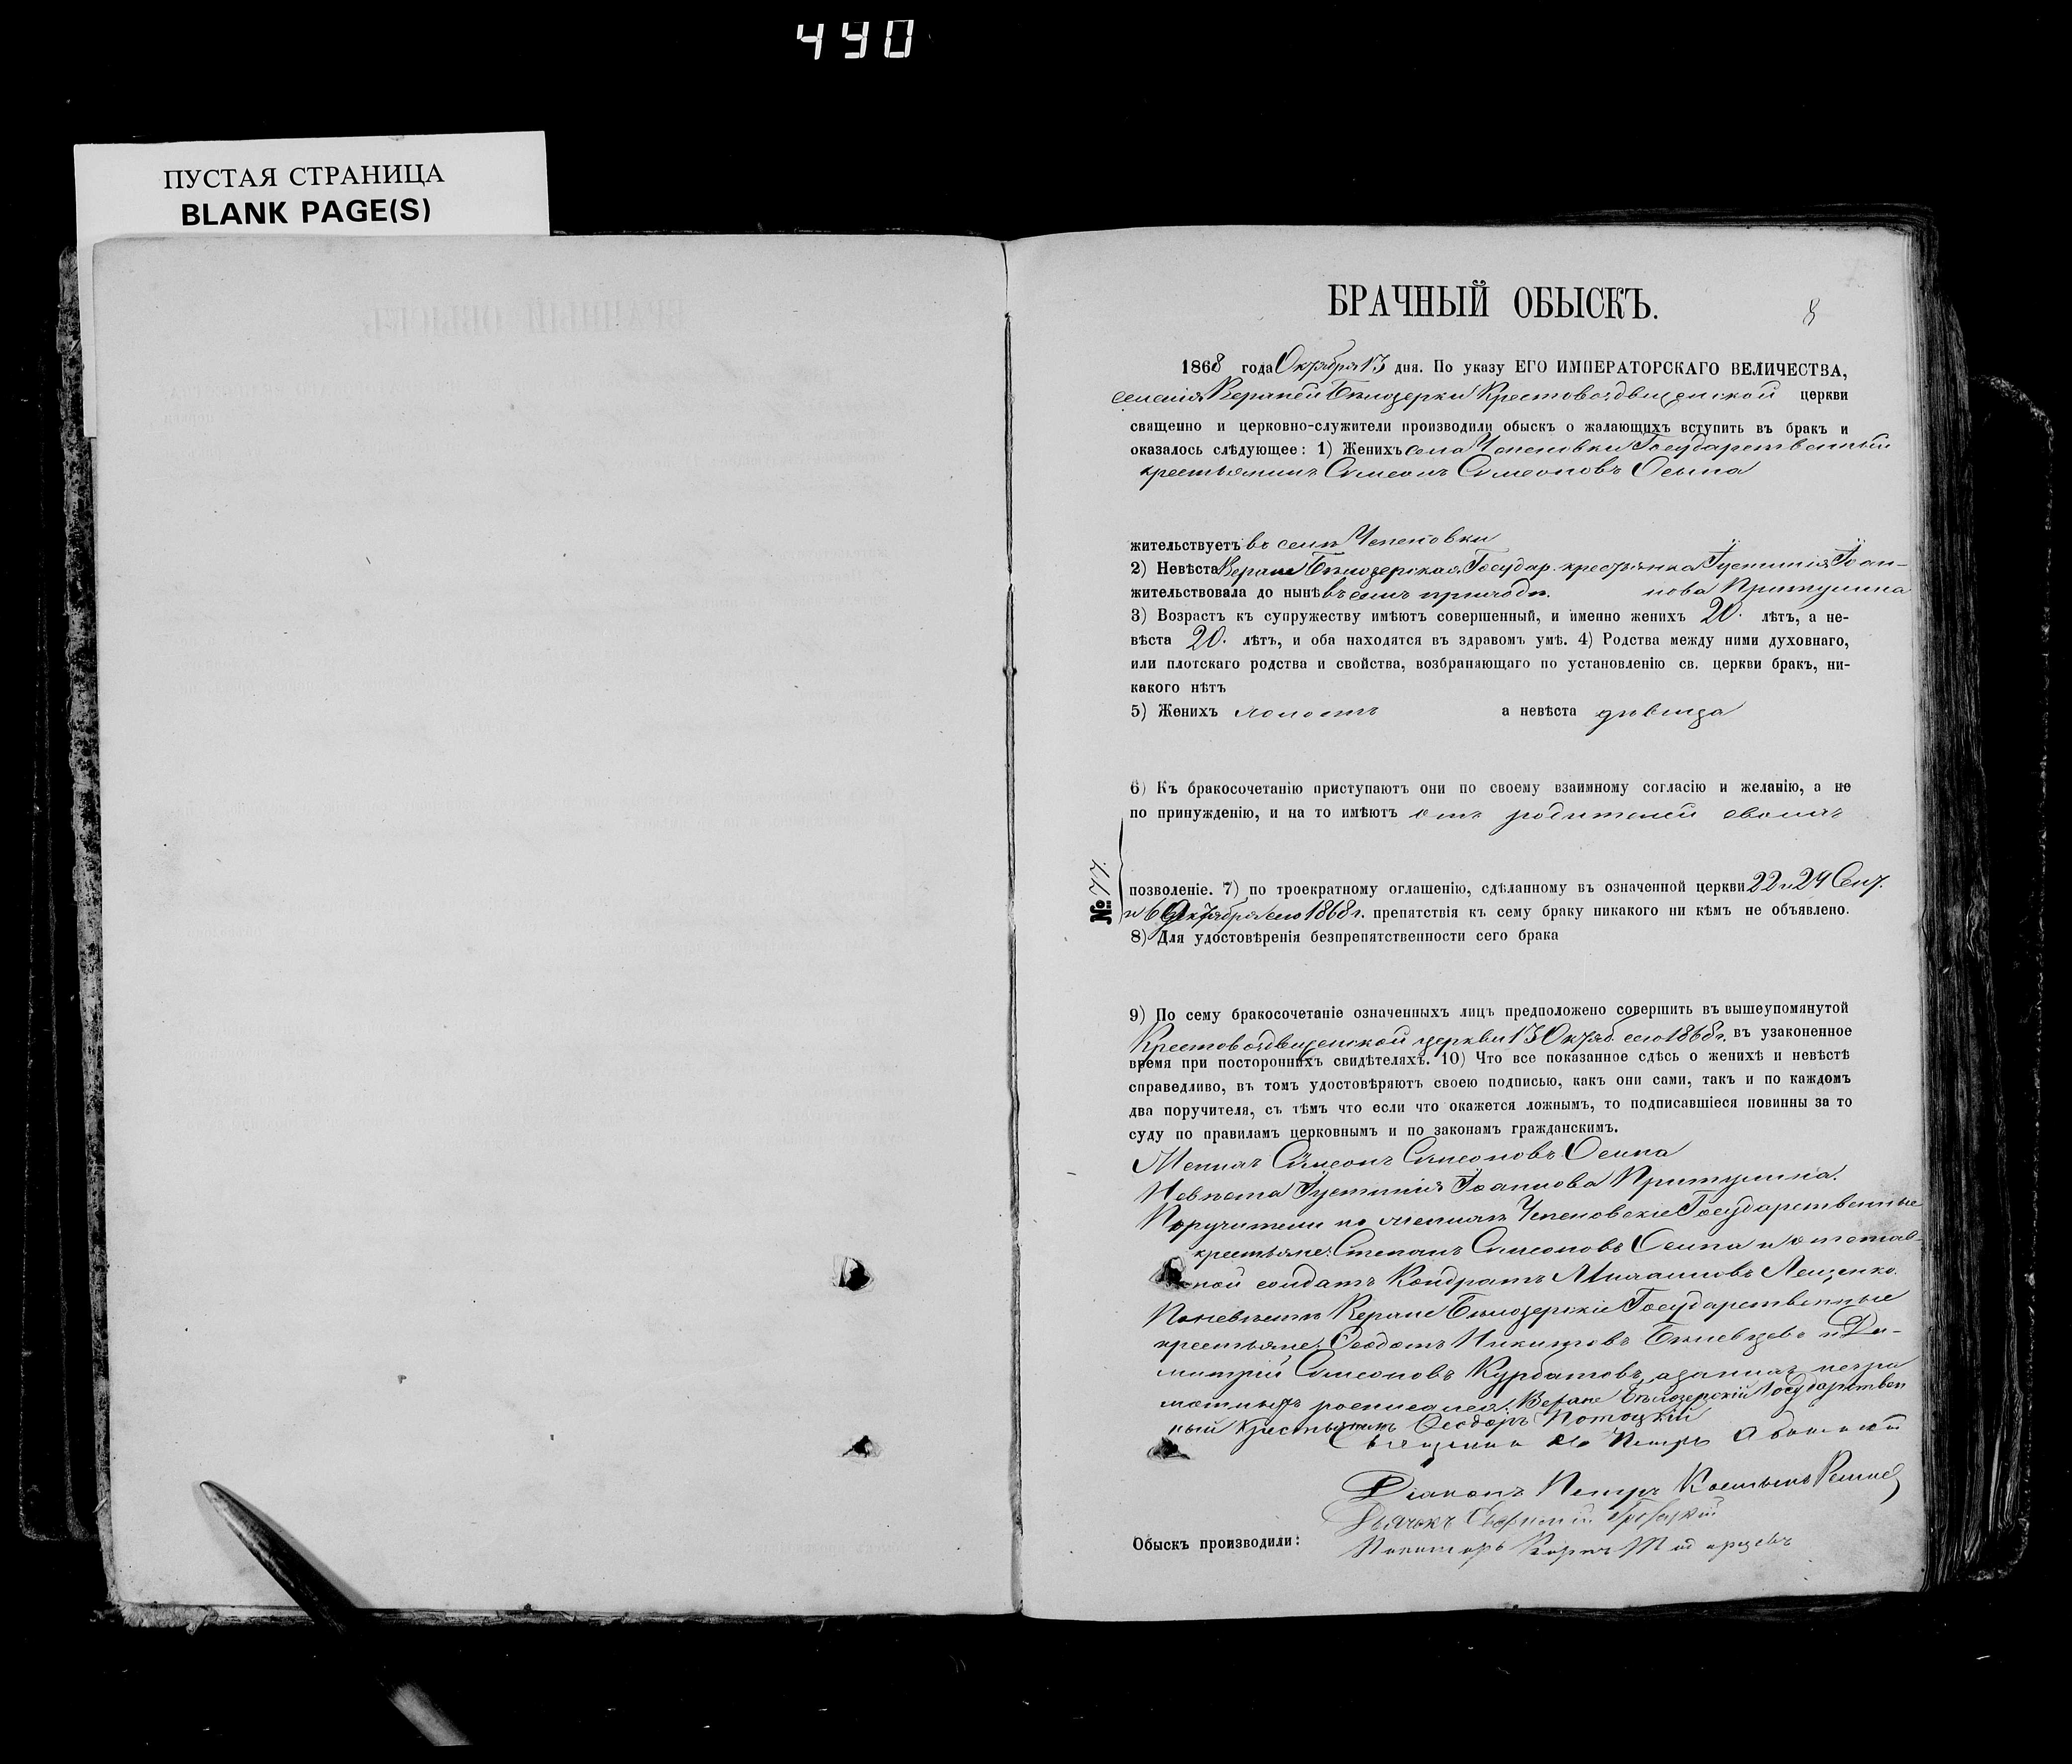 490
ПУСТАЯ СТРАНИЦА
BLANK PAGE(S)
БРАЧНЫЙ ОБЫСКЪ.
8
1868 года Октября 13 дня. По указу ЕГО ИМПЕРАТОРСКАГО ВЕЛИЧЕСТВА,
Верхней Бѣлозерки Крестовоздвиженской церкви
священно и церковно-служители производили обыскъ о жалающихъ вступить въ бракъ и
оказалось слѣдующее: 1) Женихъ села Чепеновки Государственный
крестьянинъ Симеонъ Симеоновъ Осипа
жительствуетъ въ селѣ Чепеновки
2) Невѣста Верхне Бѣлозерская Государ. крестьянка Іустинія Іоан-
жительствовала до нынѣ въ семъ приходѣ. нова Притулина
3) Возрастъ къ супружеству имѣютъ совершенный, и именно женихъ 20. лѣтъ, а не-
вѣста 20. лѣтъ, и оба находятся въ здравомъ умѣ. 4) Родства между ними духовнаго,
или плотскаго родства и свойства, возбраняющаго по установленію св. церкви бракъ, ни-
какого нѣтъ
5) Женихъ холостъ а невѣста дѣвица
6) Къ бракосочетанію приступаютъ они по своему взаимному согласію и желанію, а не
по принужденію, и на то имѣютъ отъ родителей своихъ
№ 77.
позволеніе. 7) по троекратному оглашенію, сдѣланному въ означенной церкви 22 и 24 Сент.
и 6 Октября сего 1868 г. препятствія къ сему браку никакого ни кѣмъ не объявлено.
8) Для удостовѣренія безпрепятственности сего брака
9) По сему бракосочетаніе означенныхъ лицъ предположено совершить въ вышеупомянутой
Крестовоздвиженской церкви 13 Октяб. сего 1868 г. въ узаконенное
время при постороннихъ свидѣтеляхъ. 10) Что все показанное сдѣсь о женихѣ и невѣстѣ
справедливо, въ томъ удостовѣряютъ своею подписью, какъ они сами, такъ и по каждомъ
два поручителя, съ тѣмъ что если что окажется ложнымъ, то подписавшіеся повинны за то
суду по правиламъ церковнымъ и по законамъ гражданскимъ.
Женихъ Симеонъ Симеоновъ Осипа
Невѣста Іустинія Іоаннова Притулина.
Поручители по женихѣ Чепеновскіе Государственные
крестьяне: Степанъ Симеоновъ Осипа и отстав-
ной солдатъ Кондратъ Михаиловъ Лещенко.
По невѣстѣ Верхне Бѣлозерскіе Государственные
крестьяне: Ѳеодотъ Никитовъ и Ди-
митрій Симеоновъ Курбатовъ, а за нихъ негра
мотныхъ росписался: Верхне Бѣлозерскій Государствен
ный Крестьянинъ Ѳеодоръ Потоцкій
Священникъ Петръ
Діаконъ Петръ
Дьячокъ
Обыскъ производили: Пономарь